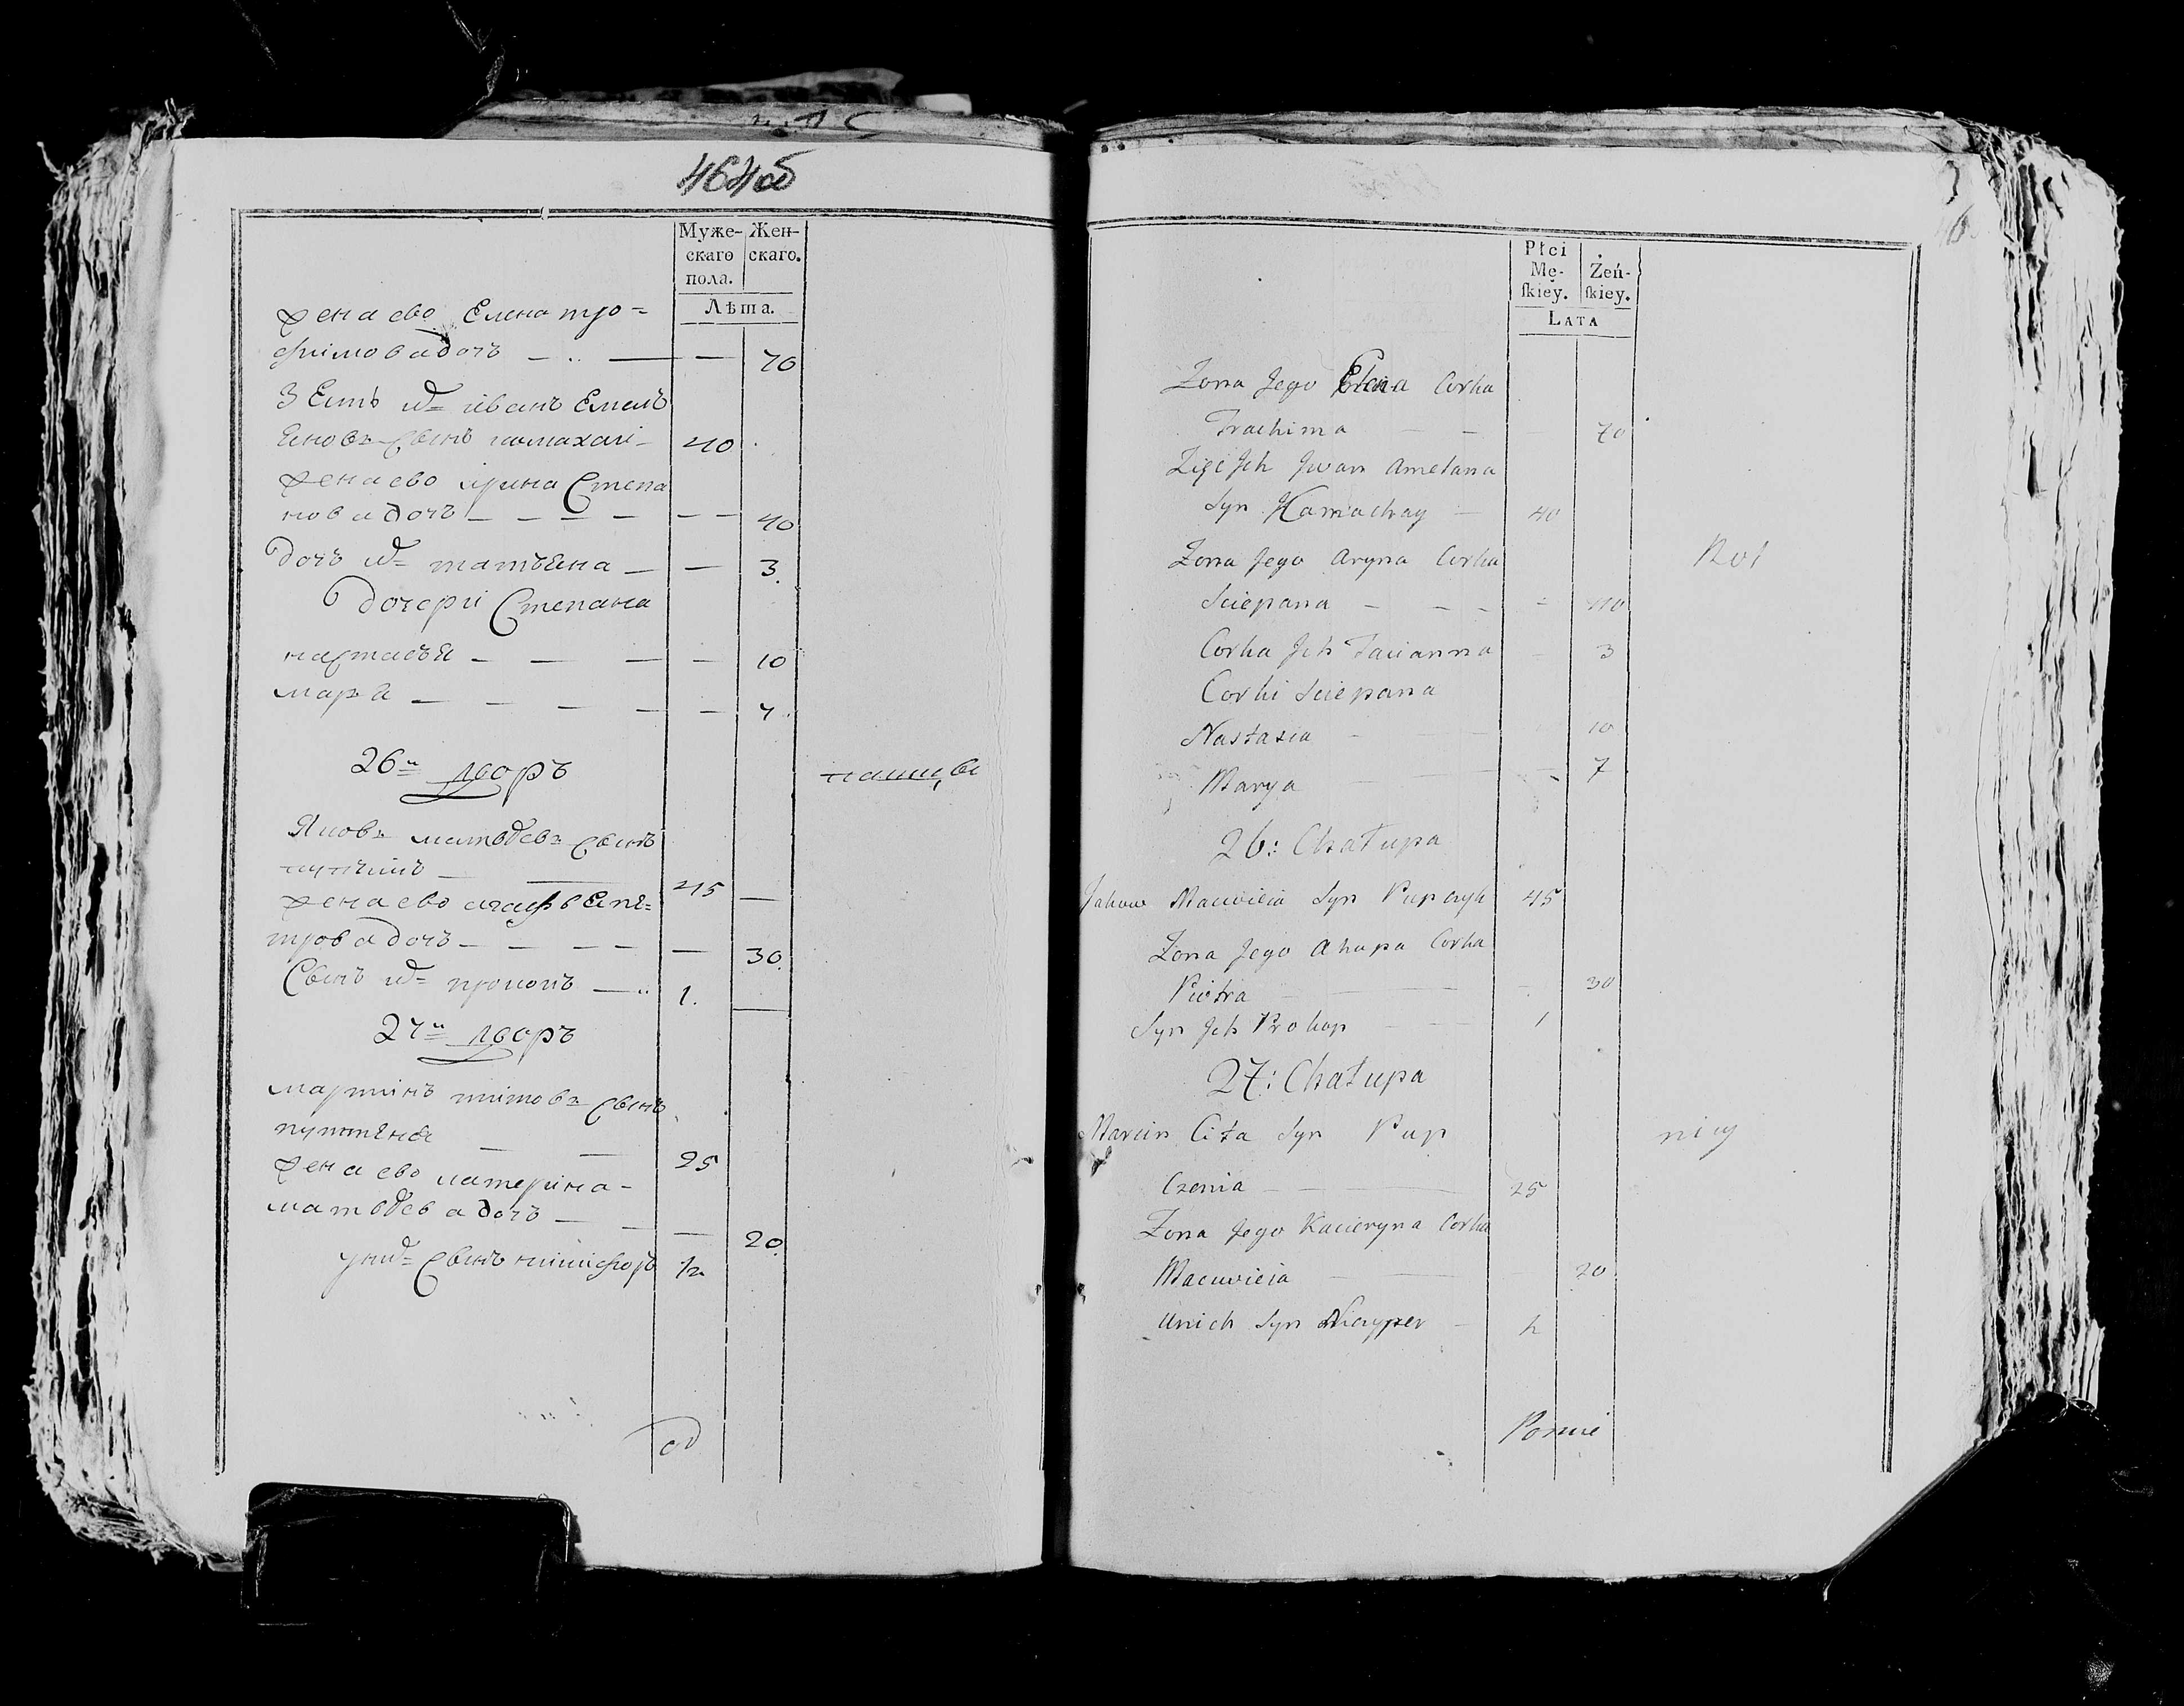 464об
Муже-
скаго
пола.
Жен-
скаго.
Лѣта.
жена ево Елена тро-
фимова дочъ — — — 70
Зять их иванъ Емелъ
яновъ сынъ камахаи — 40
жена ево ирина Степа
нова дочъ — — — — — — 40
дочъ их татъяна — — 3.
дочери Степана
настасъя — — — — 10
маръя — — — — — 7.
26й дворъ
пашцы
Яковъ матвеевъ сынъ
45 —
жена ево агафья пе-
трова дочъ — — — — — 30.
Сынъ их прокопъ — 1.
27й дворъ
мартинъ титовъ сынъ
25
жена ево катерина
матвеева дочъ — — — 20.
у них сынъ никифоръ 1/2
Płci
Mę-
ſkiey.
Żeń-
ſkiey.
Lata
Zona Jego Elena Corka
Trachima — — — 70
Zięć Ich Jwan Amelana
Syn Kamachay — 40
Zona Jego Aryna Corka
Rol
Sciepana — — - - 40
Corka Ich Tacianna — 3
Corki Sciepana
Nastazia — — 10
Marya — — — 7
26: Chałupa
Jakow Macwieia Syn Pupczyk 45
Zona Jego Ahapa Corka
Piotra — — — 30
Syn Ich Prokop — — 1
27: Chałupa
Marcin Cita Syn Pup
nicy
Czenia — — — 25
Zona Jego Kacieryna Corka
Macwieia — — 20
Unich Syn —